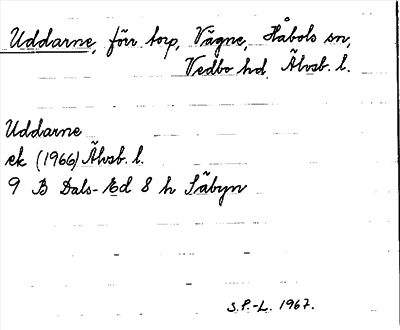 Uddarne, förr torp, Vägne, Håbols sn,
Vedbo hd, Älvsb. l.
Uddarne
ek (1966) Älvsb. l.
9 B Dals-Ed 8 h Säbyn
S.P.-L. 1967.